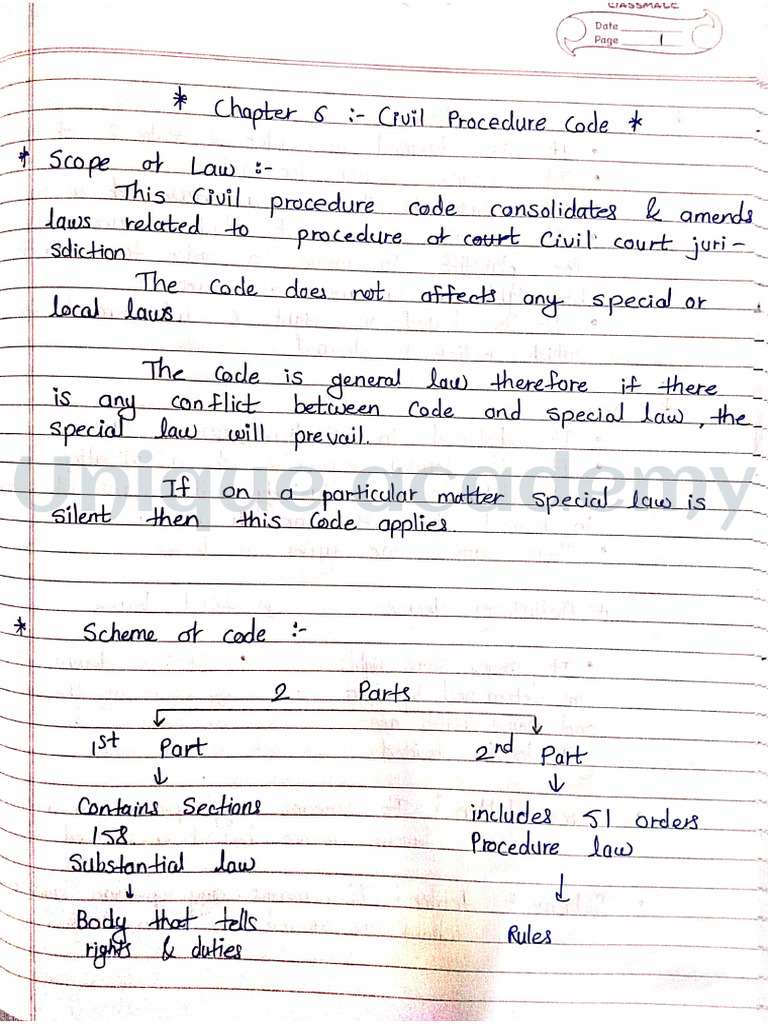 CLASSMATE
Date
Page 1
* Chapter 6 :- Civil Procedure Code *
* Scope of Law :-
This Civil procedure code consolidates & amends
laws related to procedure of court Civil court juri-
sdiction
The Code does not affects any special or
local laws
The Code is general law therefore if there
is any conflict between Code and special law, the
special law will prevail.
Unique academy
If on a particular matter special law is
silent then this Code applies
* Scheme of code :-
2 Parts
1st Part 2nd Part
Contains Sections includes 51 orders
158 Procedure law
Substantial law
Body that tells Rules
rights & duties